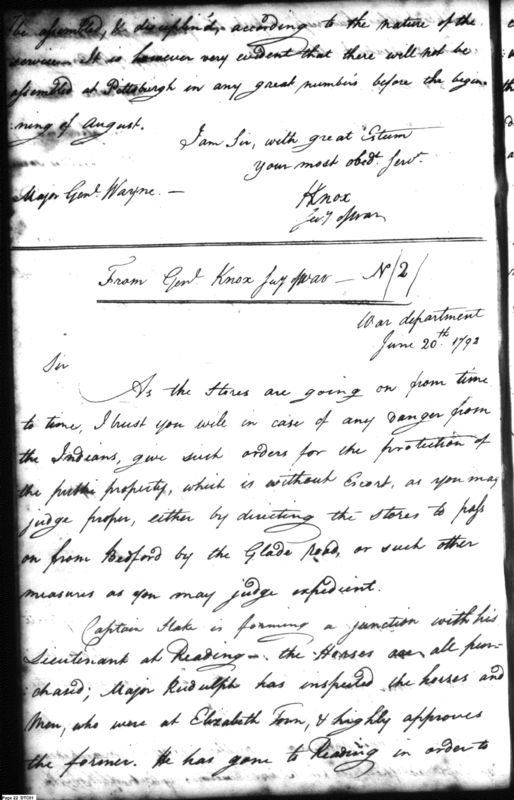 be assembled, & disciplined, according to the nature of the
service. It is however very evident that there will not be
assembled at Pittsburgh in any great numbers before the begin-
ning of August.
I am Sir, with great Esteem
your most obedt. Servt.
Major Genl. Wayne. —
HKnox
Secy of war
From Genl. Knox Secy of war — No. 2
War department
June 20th. 1792
Sir
As the Stores are going on from time
to time, I trust you will in case of any danger from
the Indians, give such orders for the protection of
the public property, which is without Escort, as you may
judge proper, either by directing the Stores to pass
on from Bedford by the Glade road, or such other
measures as you may judge expedient.
Captain Stake is forming a junction with his
Lieutenant at Reading — the Horses are all pur-
chased; Major Rudulph has inspected the horses and
Men, who were at Elizabeth Town, & highly approves
the former. He has gone to Reading in order to
Page 22